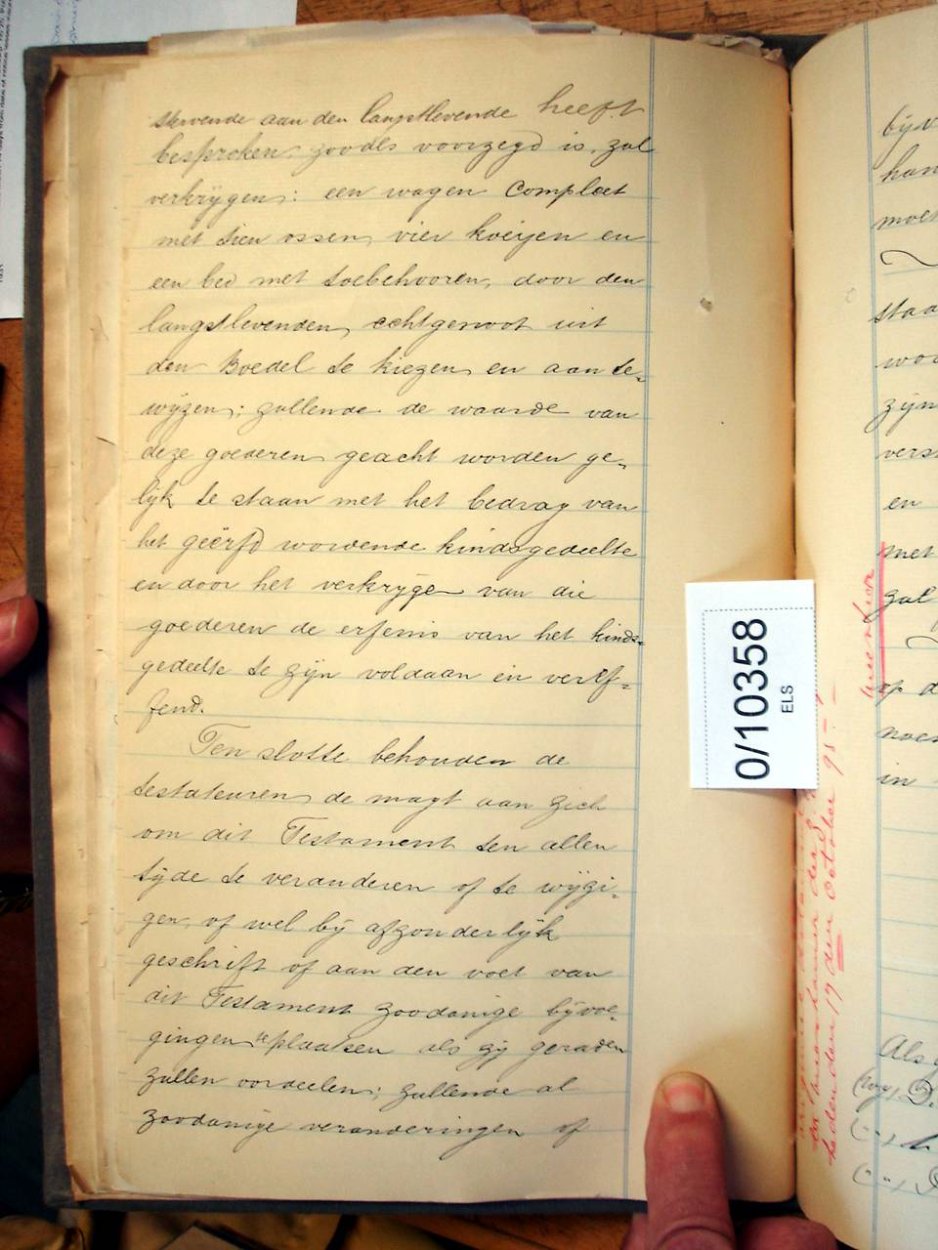 stervende aan den langstlevende heeft
besproken, zooals voorzegd is, zal
verkrijgen: een wagen Compleet
met tien ossen, vier koeijen en
een bed met toebehooren, door den
langstlevenden, echtgenoot uit
den Boedel te kiezen en aan te-
wijzen; zullende de waarde van
deze goederen geacht worden ge-
lijk te staan met het bedrag van
het geërfd wordende kindsgedeelte
en door het verkryge van die
goederen de erfenis van het kinds-
gedeelte te zijn voldaan en veref-
fend.
Ten slotte behouden de
testateuren de magt aan zich
om dit Testament ten allen
tijde te veranderen of te wijzi-
gen, of wel bij afzonderlijk
geschrift of aan den voet van
dit Testament zoodanige bijvoe-
gingen te plaatsen als zij geraden
zullen oordeelen; zullende al
zoodanige veranderingen of
0/103358
ELS
bijv
han
moet
staa
wor
zijn
vers
en
met
zal
op d
noem
in
heden den 17 den October 95
Als g
(wg) D.